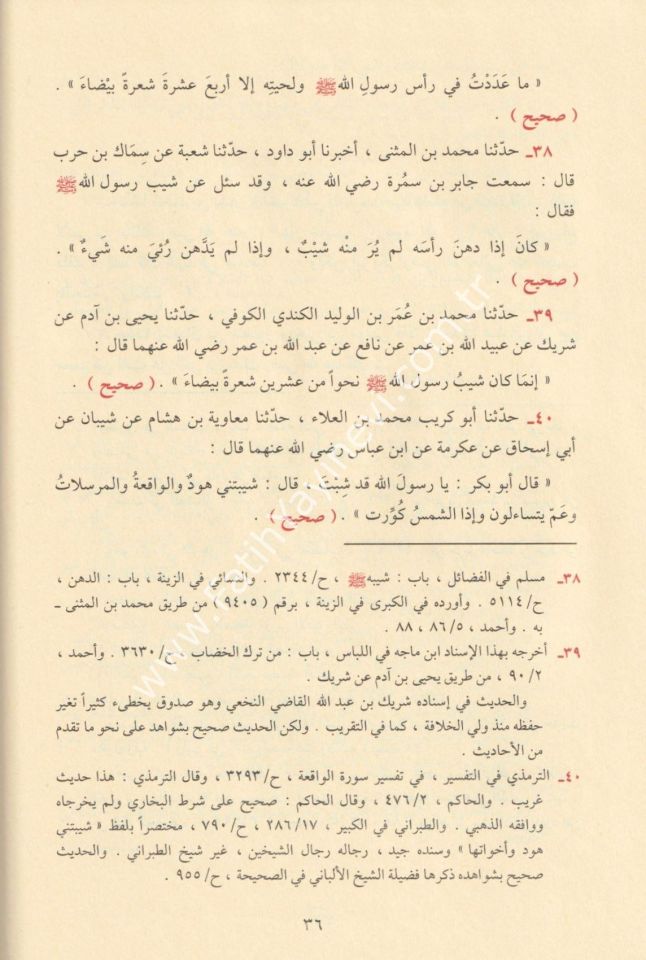 « ما عَدَدْتُ في رأس رسولِ اللهﷺ ولحيتِه إلا أربعَ عشرةَ شعرةً بيْضاءَ » .
( صحيح ) .
٣٨ـ حدّثنا محمد بن المثنى ، أخبرنا أبو داود ، حدّثنا شعبة عن سِمَاك بن حرب
قال : سمعت جابر بن سمُرة رضي الله عنه ، وقد سئل عن شيب رسول اللهﷺ
فقال :
« كانَ إذا دهنَ رأسَه لم يُرَ منْه شيْبٌ ، وإذا لم يَدَّهن رُئيَ منه شَيءٌ » .
( صحيح ) .
٣٩ـ حدّثنا محمد بن عُمَر بن الوليد الكندي الكوفي ، حدّثنا يحيى بن آدم عن
شريك عن عبيد الله بن عمر عن نافع عن عبد الله بن عمر رضي الله عنهما قال :
« إنمَا كان شيبُ رسول اللهﷺ نحواً من عشرين شعرةً بيضاءَ » . ( صحيح ) .
٤٠ـ حدّثنا أبو كريب محمد بن العلاء ، حدّثنا معاوية بن هشام عن شيبان عن
أبي إسحاق عن عكرمة عن ابن عباس رضي الله عنهما قال :
« قال أبو بكر : يا رسولَ الله قد شِبْتَ ، قال : شيبتني هودٌ والواقعةُ والمرسلاتُ
وعَمّ يتساءلون وإذا الشمسُ كُوِّرت » . ( صحيح ) .
٣٨ـ مسلم في الفضائل ، باب : شيبهﷺ ، ح/ ٢٣٤٤ . والنسائي في الزينة ، باب : الدهن ،
ح/ ٥١١٤ . وأورده في الكبرى في الزينة ، برقم ( ٩٤٠٥ ) من طريق محمد بن المثنى ـ
به . وأحمد ، ٥/ ٨٦ ، ٨٨ .
٣٩ـ أخرجه بهذا الإسناد ابن ماجه في اللباس ، باب : من ترك الخضاب ، ح/ ٣٦٣٠ . وأحمد ،
٢/ ٩٠ ، من طريق يحيى بن آدم عن شريك .
والحديث في إسناده شريك بن عبد الله القاضي النخعي وهو صدوق يخطىء كثيراً تغير
حفظه منذ ولي الخلافة ، كما في التقريب . ولكن الحديث صحيح بشواهد على نحو ما تقدم
من الأحاديث .
٤٠ـ الترمذي في التفسير ، في تفسير سورة الواقعة ، ح/ ٣٢٩٣ ، وقال الترمذي : هذا حديث
غريب . والحاكم ، ٢/ ٤٧٦ ، وقال الحاكم : صحيح على شرط البخاري ولم يخرجاه
ووافقه الذهبي . والطبراني في الكبير ، ١٧/ ٢٨٦ ، ح/ ٧٩٠ ، مختصراً بلفظ « شيبتني
هود وأخواتها » وسنده جيد ، رجاله رجال الشيخين ، غير شيخ الطبراني . والحديث
صحيح بشواهده ذكرها فضيلة الشيخ الألباني في الصحيحة ، ح/ ٩٥٥ .
٣٦
www.fatihyayinevi.com.tr